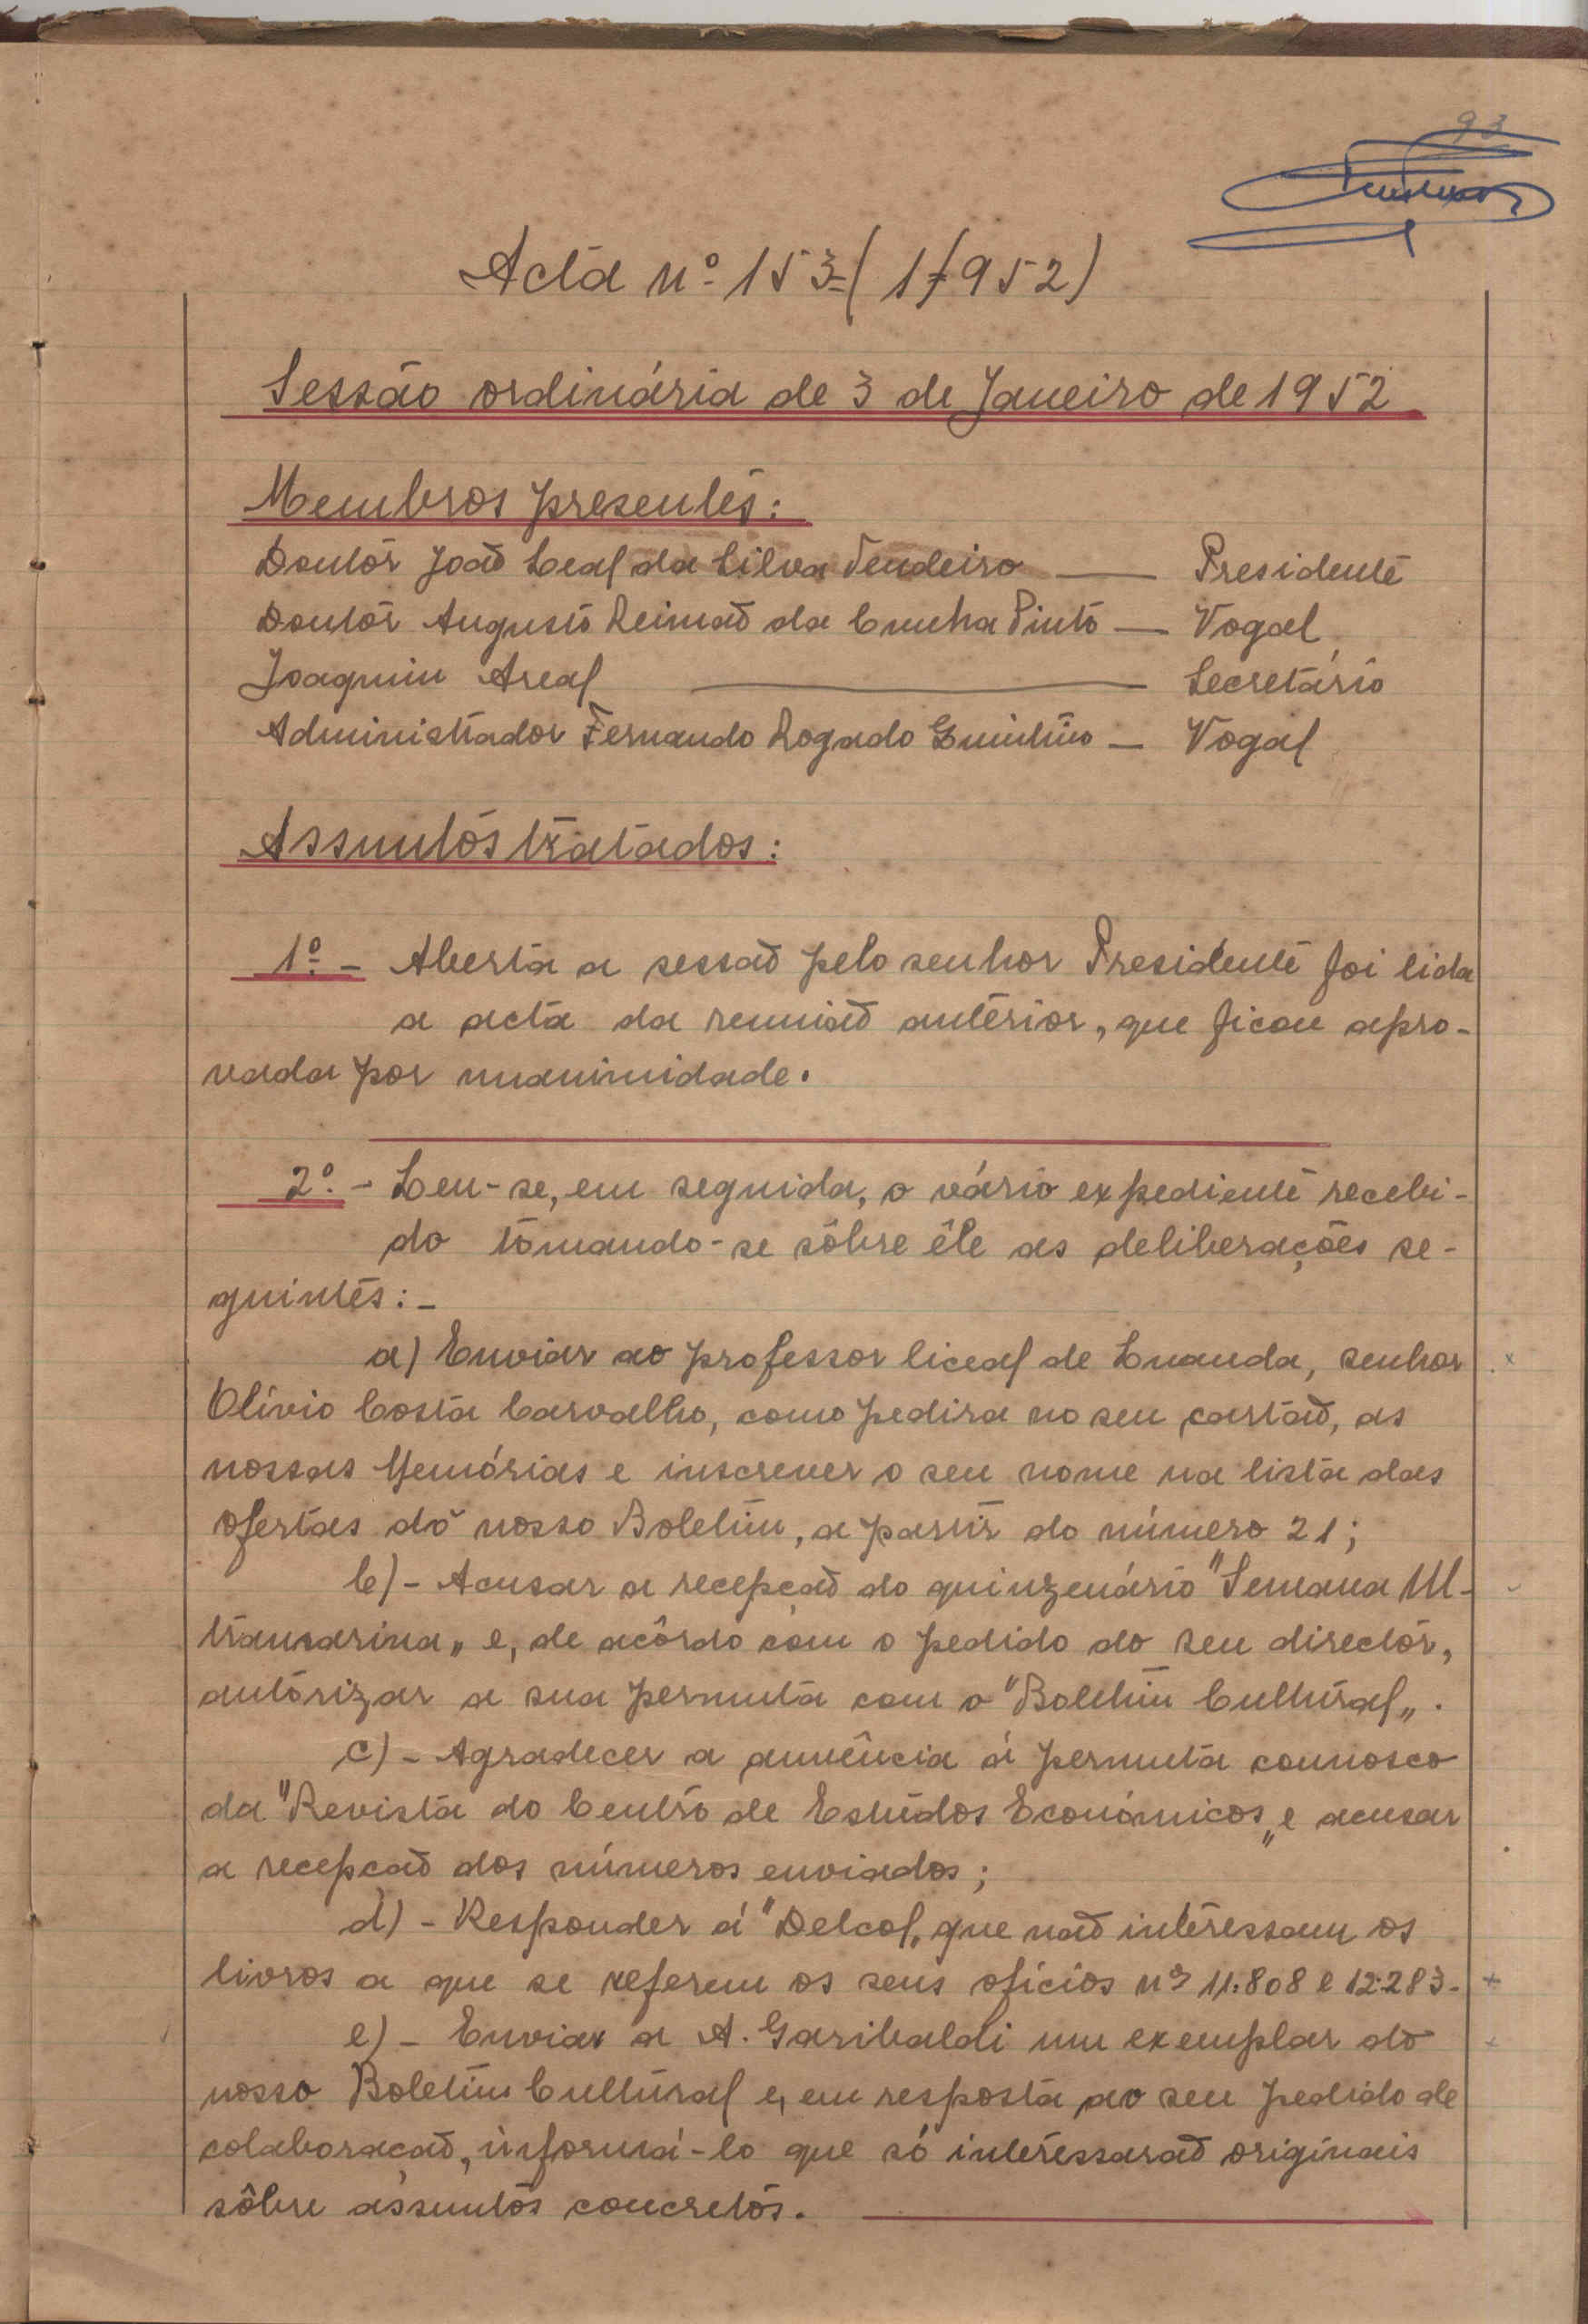 93
Acta nº 153 (1/952)
Sessão ordinária de 3 de Janeiro de 1952
Membros presentes:
Doutor João Leal da Silva Tendeiro — Presidente
Doutor Augusto Reimão da Cunha Pinto — Vogal
Joaquim Areal — Secretário
Administrador Fernando Rogado Quintino — Vogal
Assuntos tratados:
1º. - Aberta a sessão pelo senhor Presidente foi lida
a acta da reunião anterior, que ficou apro-
vada por unanimidade.
2º. - Leu-se, em seguida, o vário expediente recebi-
do tomando-se sôbre êle as deliberações se-
guintes: -
a) Enviar ao professor liceal de Luanda, senhor
Olívio Costa Carvalho, como pedira no seu cartão, as
nossas Memórias e inscrever o seu nome na lista das
ofertas do nosso Boletim, a partir do número 21;
b) - Acusar a recepção do quinzenário "Semana Ul-
tramarina„ e, de acôrdo com o pedido do seu director,
autorizar a sua permuta com o "Boletim Cultural„.
c) - Agradecer a anuência á permuta connosco
da "Revista do Centro de Estudos Económicos„ e acusar
a recepção dos números enviados;
d) - Responder á "Delcol„ que não interessam os
livros a que se referem os seus ofícios nºs 11.808 e 12.283.
e) - Enviar a A. Garibaldi um exemplar do
nosso Boletim Cultural e, em resposta ao seu pedido de
colaboração, informá-lo que só interessarão originais
sôbre assuntos concretos.